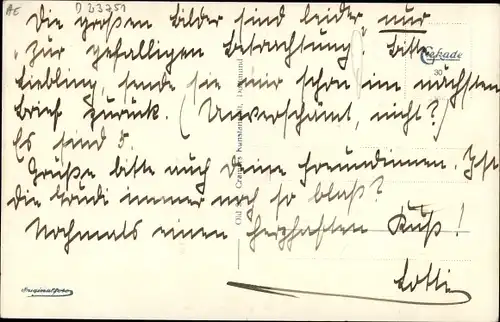 AE D 23751
Die großen Bilder sind leider nur
"Zur gefälligen Betrachtung". Bitte
Liebling, sende sie mir schon im nächsten
Brief zurück. (Unverschämt, nicht?)
Es sind 5.
Grüße bitte auch deine Freundinnen. Ist
die Trudi immer noch so blaß?
Nochmals einen herzhaften Kuß!
Lotti
Cekade
30
Cramers Kunstanstalt, Dortmund
Originalfoto